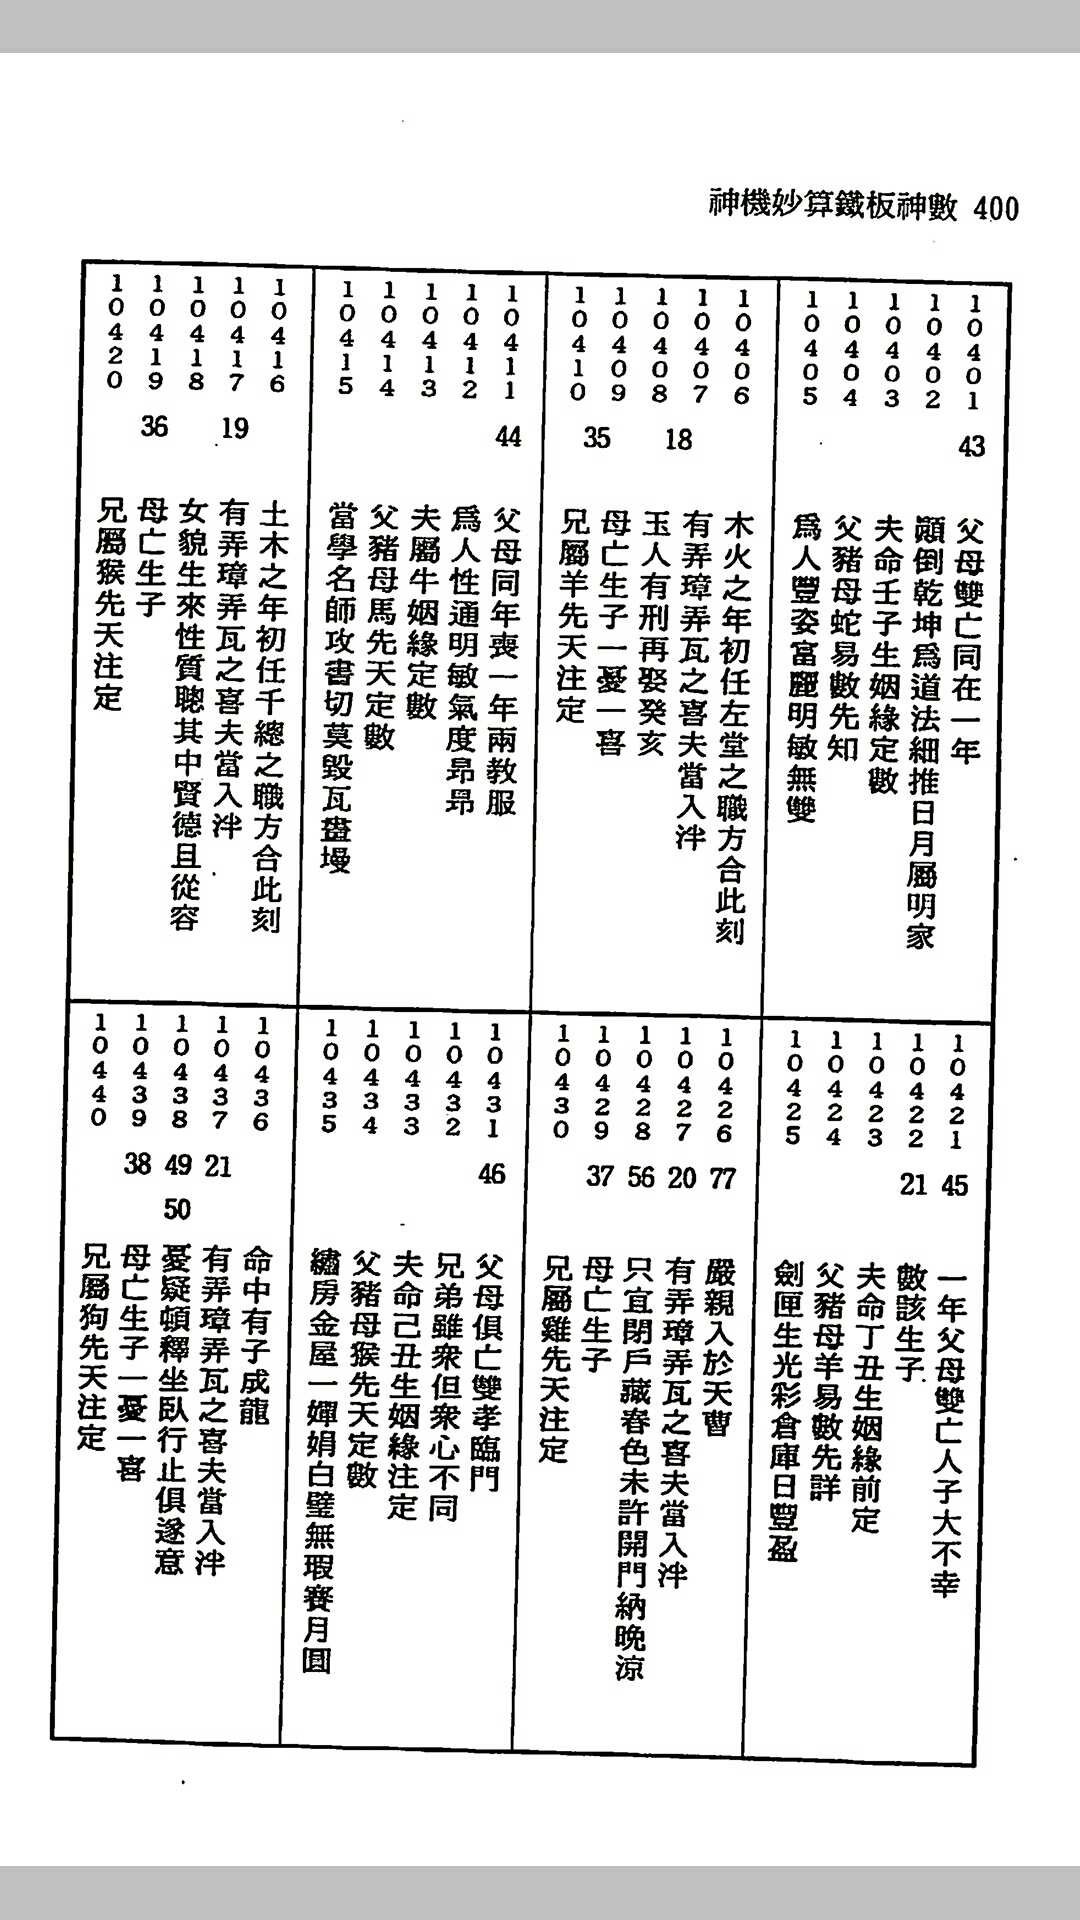 神機妙算鐵板神數 400
10401 43 父母雙亡同在一年
10402 顚倒乾坤爲道法細推日月屬明家
10403 夫命壬子生姻緣定數
10404 父豬母蛇易數先知
10405 爲人豐姿富麗明敏無雙
10406 木火之年初任左堂之職方合此刻
10407 有弄璋弄瓦之喜夫當入泮
10408 18 玉人有刑再娶癸亥
10409 母亡生子一憂一喜
10410 35 兄屬羊先天注定
10411 44 父母同年喪一年兩教服
10412 爲人性通明敏氣度昂昂
10413 夫屬牛姻緣定數
10414 父豬母馬先天定數
10415 當學名師攻書切莫毀瓦畫墁
10416 土木之年初任千總之職方合此刻
10417 19 有弄璋弄瓦之喜夫當入泮
10418 女貌生來性質聰其中賢德且從容
10419 36 母亡生子
10420 兄屬猴先天注定
10421 45 一年父母雙亡人子大不幸
10422 21 數該生子
10423 夫命丁丑生姻緣前定
10424 父豬母羊易數先詳
10425 劍匣生光彩倉庫日豐盈
10426 77 嚴親入於天曹
10427 20 有弄璋弄瓦之喜夫當入泮
10428 56 只宜閉戶藏春色未許開門納晚涼
10429 37 母亡生子
10430 兄屬雞先天注定
10431 46 父母俱亡雙孝臨門
10432 兄弟雖衆但衆心不同
10433 夫命己丑生姻緣注定
10434 父豬母猴先天定數
10435 繡房金屋一嬋娟白璧無瑕賽月圓
10436 命中有子成龍
10437 21 有弄璋弄瓦之喜夫當入泮
10438 49 50 憂疑頓釋坐臥行止俱遂意
10439 38 母亡生子一憂一喜
10440 兄屬狗先天注定